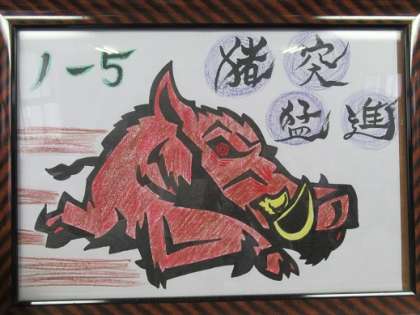 1-5
猪突
猛進